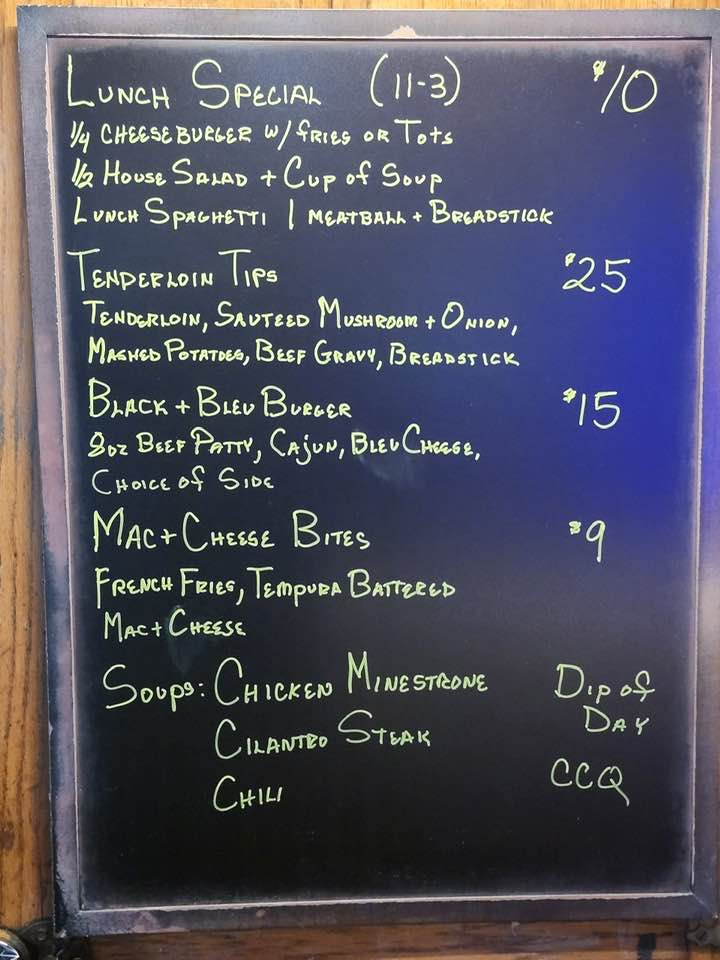 Lunch Special (11-3) $10
1/4 Cheeseburger w/ fries or Tots
1/2 House Salad + Cup of Soup
Lunch Spaghetti 1 meatball + Breadstick
Tenderloin Tips $25
Tenderloin, Sauteed Mushroom + Onion,
Mashed Potatoes, Beef Gravy, Breadstick
Black + Bleu Burger $15
8oz Beef Patty, Cajun, Bleu Cheese,
Choice of Side
Mac + Cheese Bites $9
French Fries, Tempura Battered
Mac + Cheese
Soups: Chicken Minestrone
Cilantro Steak
Chili
Dip of
Day
CCQ